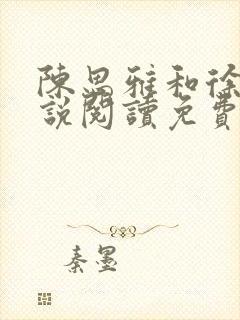 陳思雅和徐
說閱讀免費
秦墨